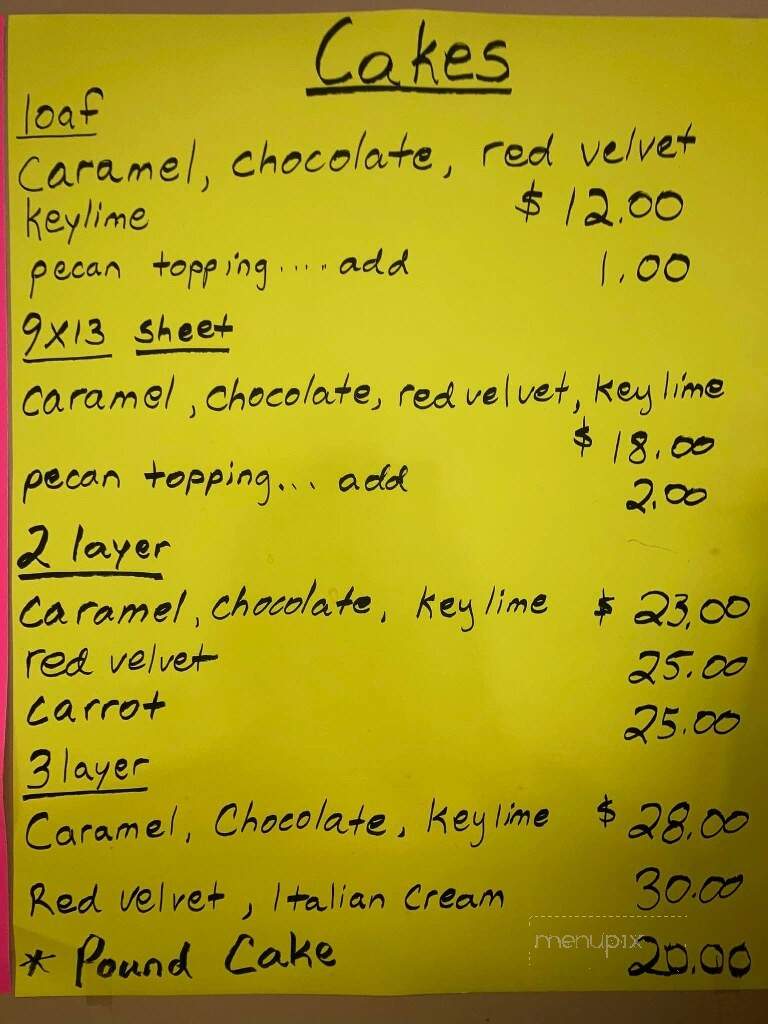 Cakes
loaf
Caramel, chocolate, red velvet
keylime $ 12.00
pecan topping..... add 1.00
9x13 sheet
caramel, chocolate, red velvet, key lime
$ 18.00
pecan topping... add 2.00
2 layer
Caramel, chocolate, key lime $ 23.00
red velvet 25.00
carrot 25.00
3 layer
Caramel, Chocolate, key lime $ 28.00
Red velvet, Italian Cream 30.00
menupix
* Pound Cake 20.00